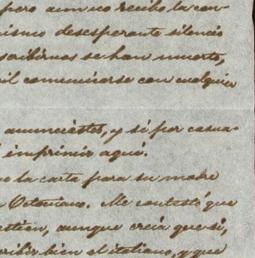 pero aun no recibo la con-
ismo desesperante silencio
scribirnos se han muerto,
il comunicarse con cualquier
anunciastes, y si por casua-
imprimir aquí.
la carta para su madre
Octaviano. Me contestó que
aunque creía que sí,
cribir bien el italiano, y que